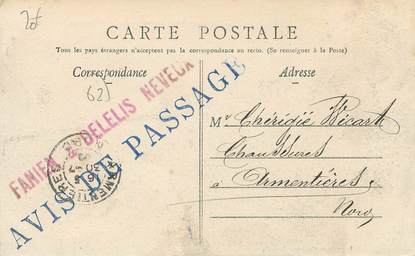 20f
CARTE POSTALE
Tous les pays étrangers n'acceptent pas la correspondance au recto. (Se renseigner à la Poste)
Correspondance
Adresse
62)
FANIEN & DELELIS NEVEUX
AVIS DE PASSAGE
ARMENTIERES
Mr Chéridié Bécart
Chaussures
à Armentières
Nord